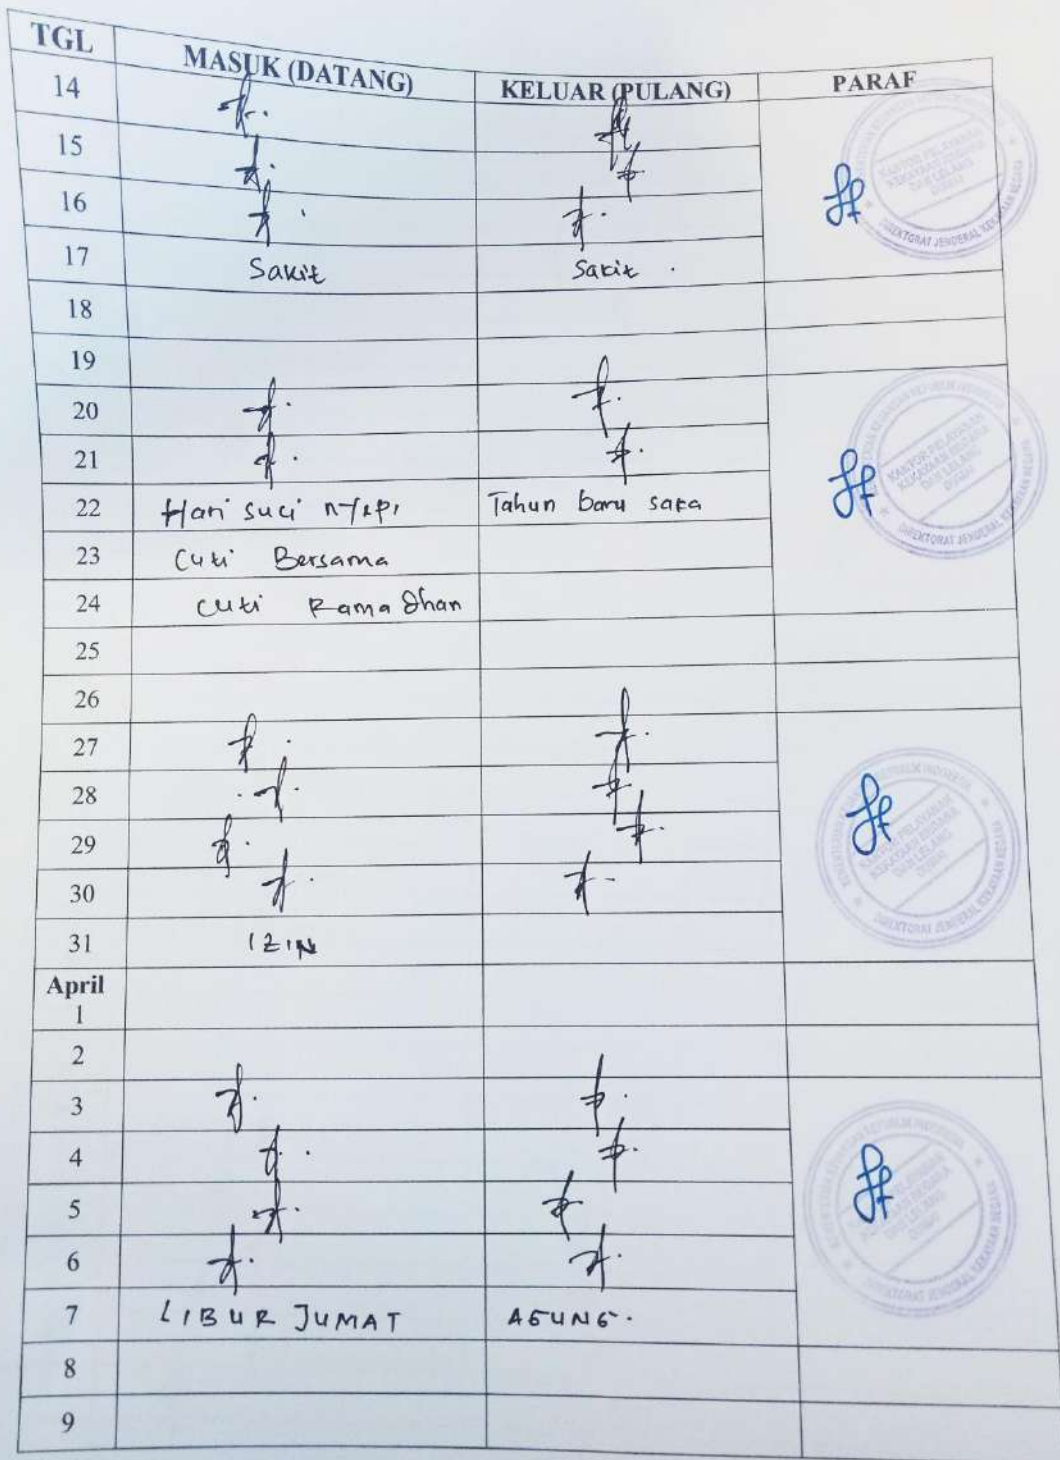 TGL MASUK (DATANG) KELUAR (PULANG) PARAF
14
15
16
17 Sakit Sakit .
18
19
20
21
22 Hari suci nyepi Tahun baru saka
23 Cuti Bersama
24 cuti Ramadhan
25
26
27
28
29
30
31 IZIN
April
1
2
3
4
5
6
7 LIBUR JUMAT AGUNG.
8
9
KANTOR PELAYANAN
KEKAYAAN NEGARA
DAN LELANG
DUMAI
DIREKTORAT JENDERAL KEKAYAAN NEGARA